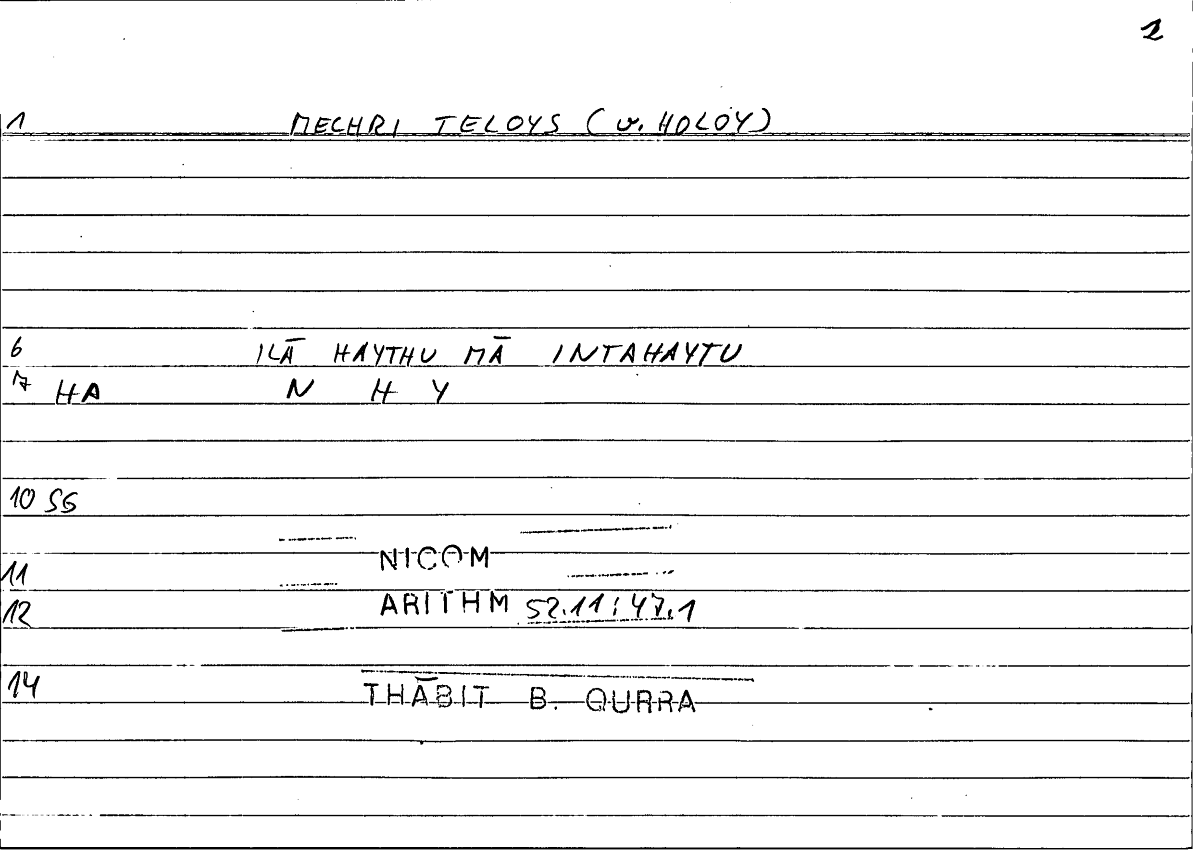 2
1 MECHRI TELOYS (v. HOLOY)
6 ILĀ HAYTHU MĀ INTAHAYTU
7 HA N H Y
10 SG
11 NICOM
12 ARITHM 52.11; 47.1
14 THĀBIT B. QURRA